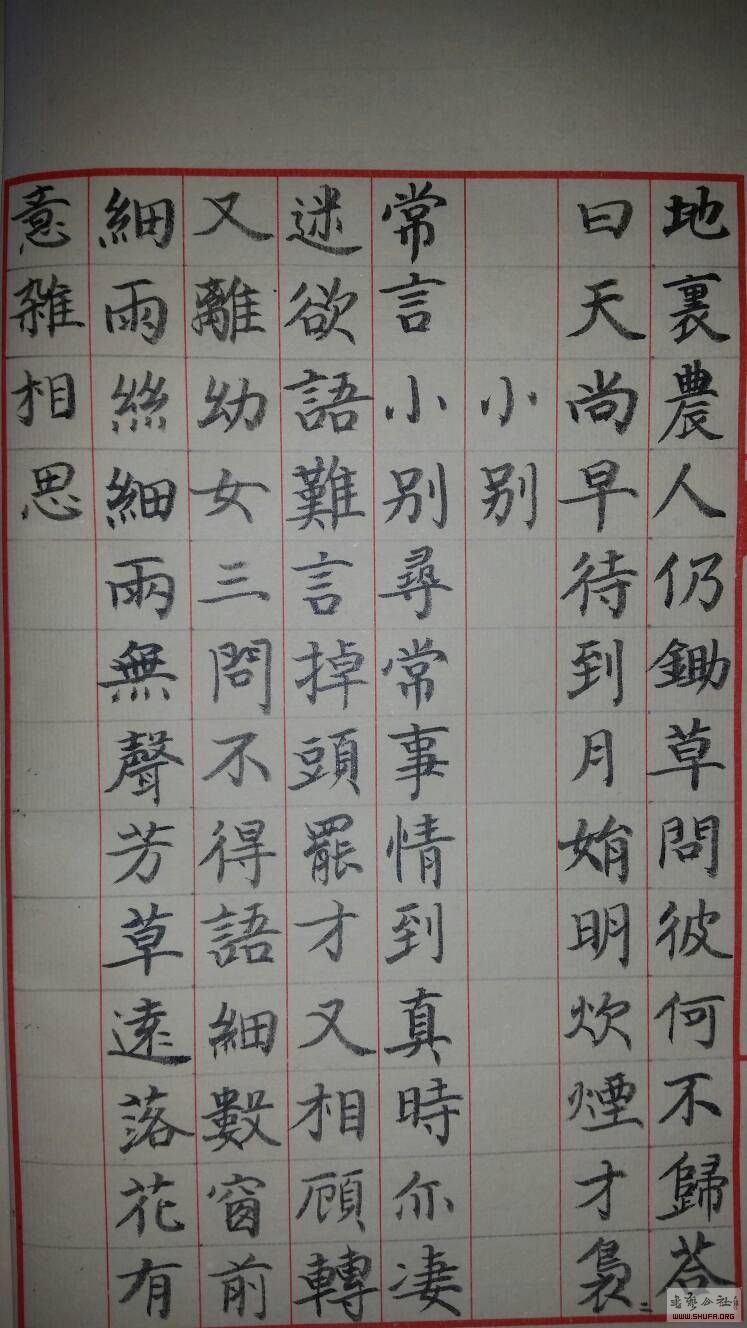 地裏農人仍鋤草問彼何不歸荅
曰天尚早待到月明炊煙才裊〻
小别
常言小别尋常事情到真時亦凄
迷欲語難言掉頭罷才又相顧轉
又離幼女三問不得語細數窗前
細雨絲細雨無聲芳草遠落花有
意雜相思
WWW.SHUFA.ORG